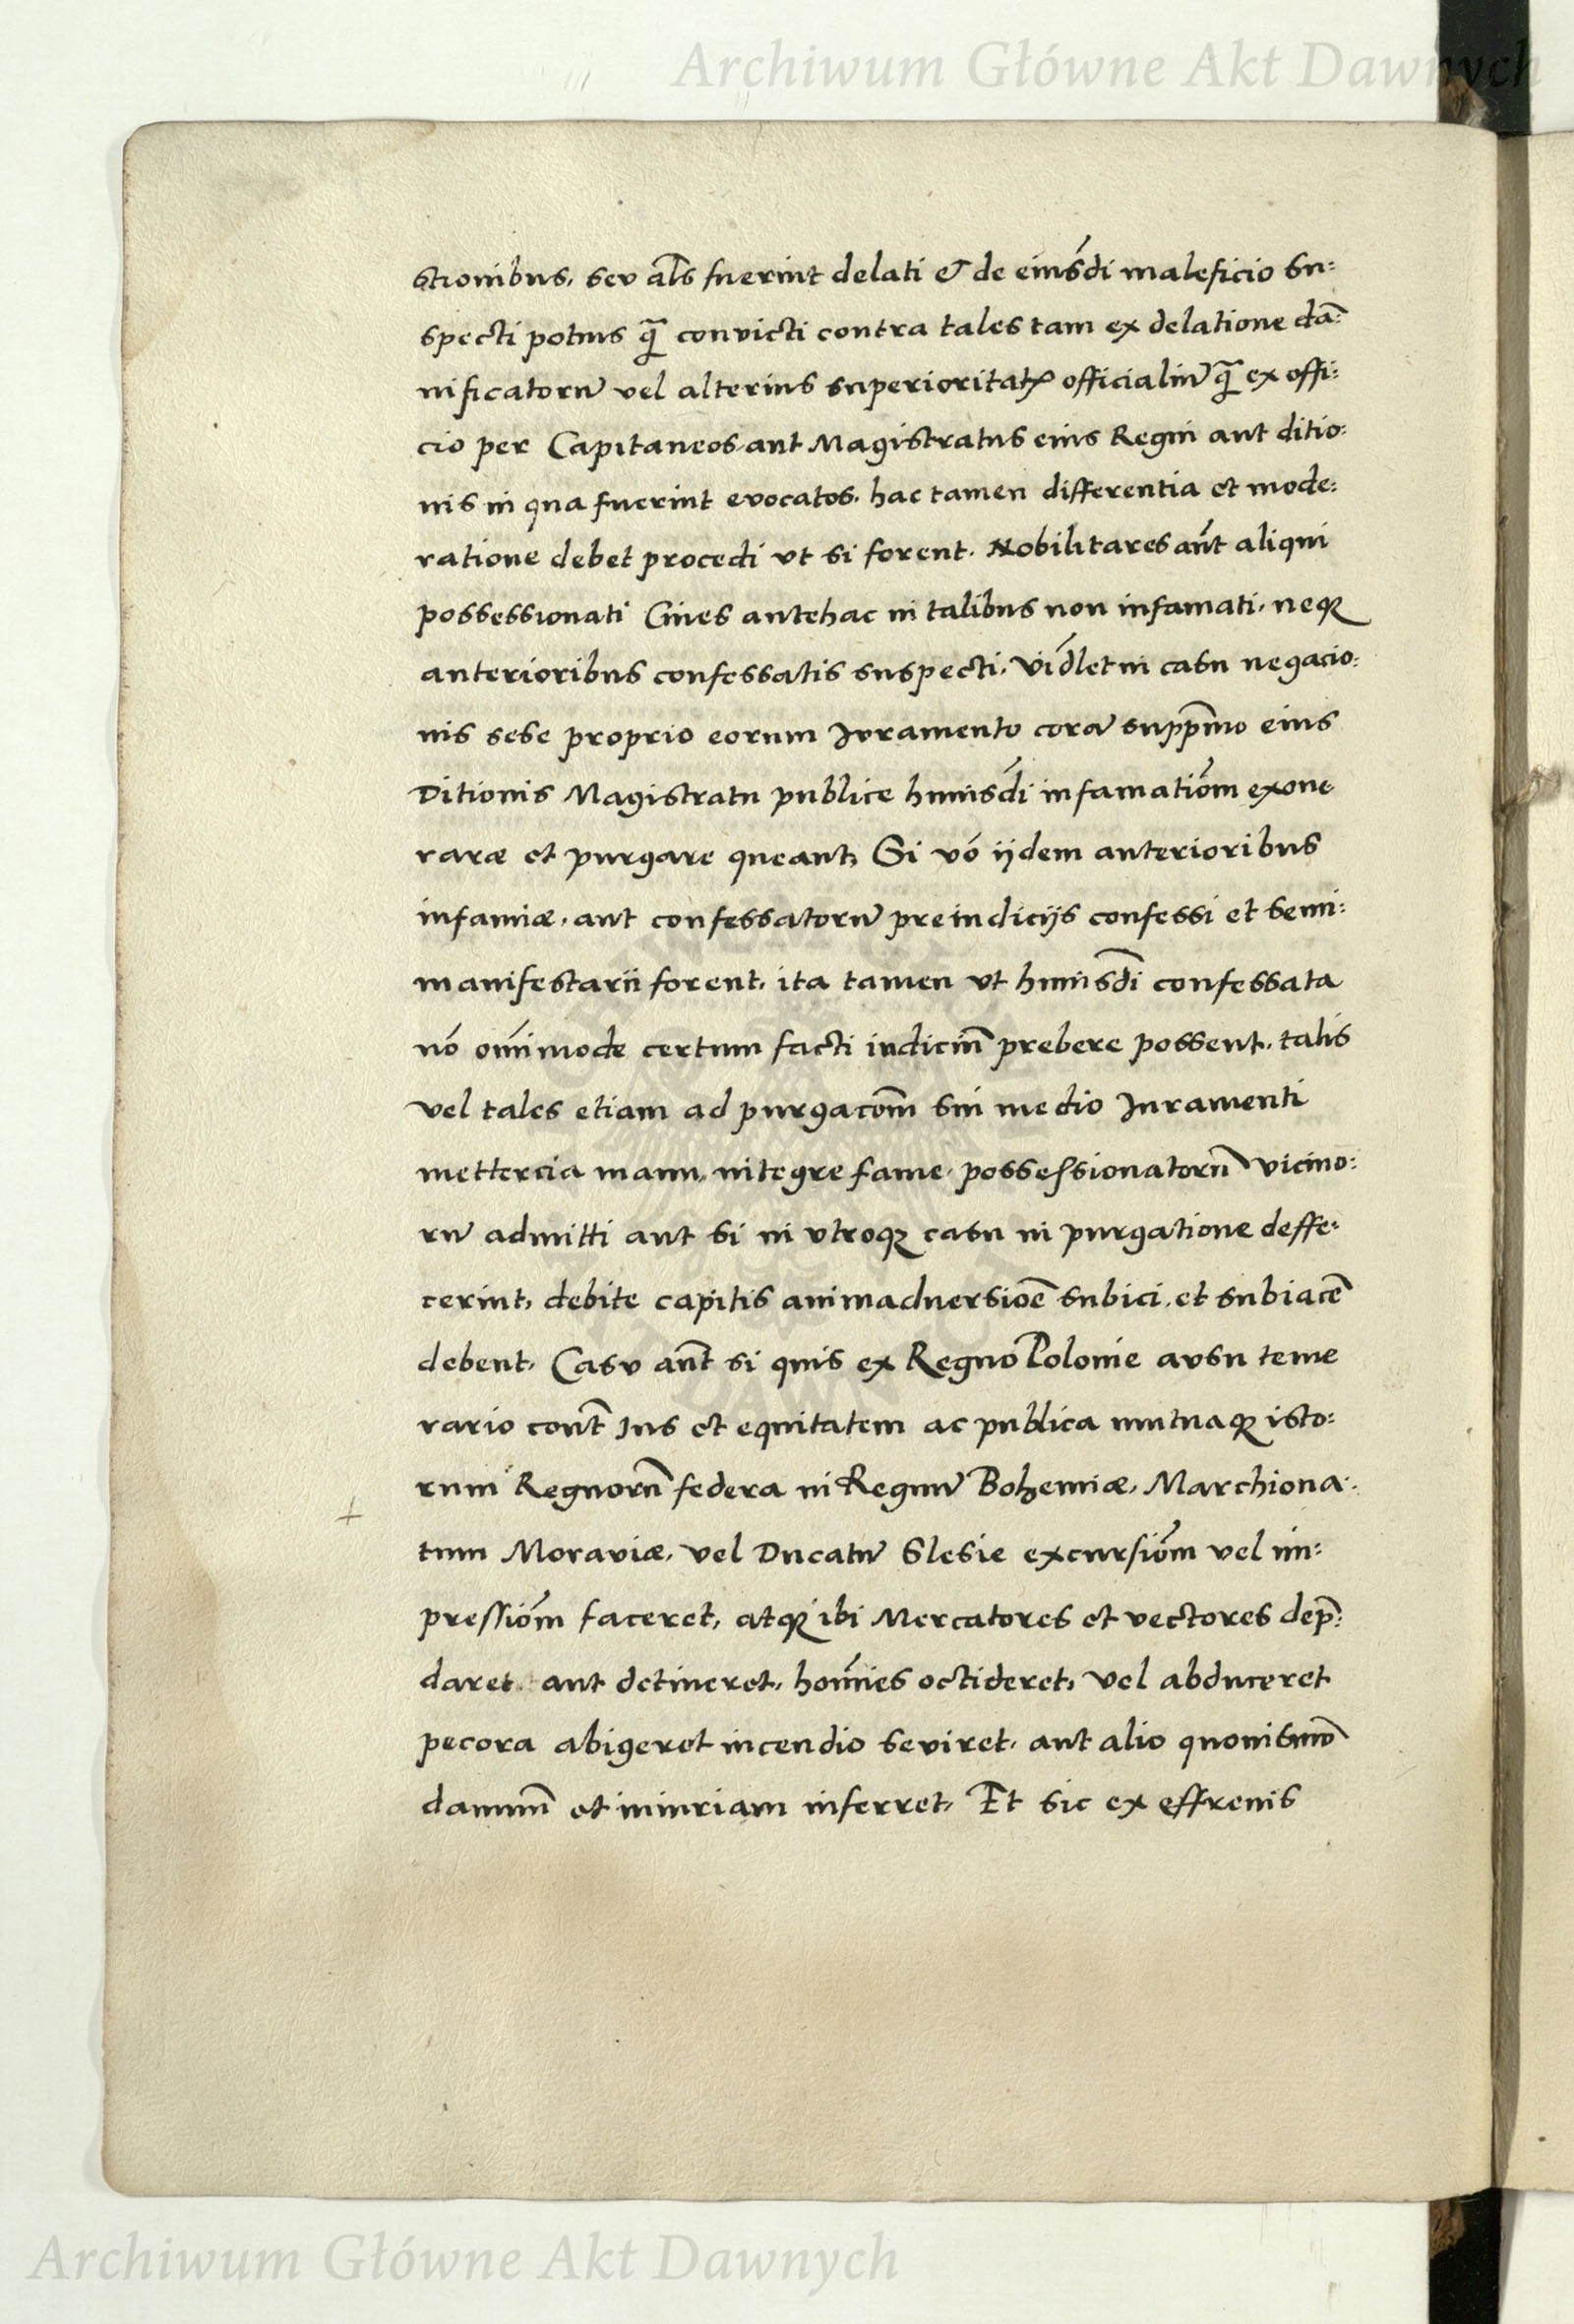 Archiwum Główne Akt Dawnych
stionibus, seu al̃s fuerint delati & de eiusdẽ maleficio su:
specti potius q̃ convicti contra tales tam ex delatione dã:
nificatorũ vel alterius superioritatꝭ officialiũ q̃ ex offi:
cio per Capitaneos aut Magistratus eius Regni aut ditio:
nis in qua fuerint evocatos, hac tamen differentia et mode:
ratione debet procedi vt si forent. Nobilitares aũt aliqui
possessionati Ciues antehac in talibus non infamati, neqꝫ
anterioribus confessatis suspecti, vidl̃et in casu negacio:
nis sese proprio eorum Juramento corã supp̃mo eius
Ditionis Magistratu publice huiusdĩ infamatiõm exone
raræ et purgare queant, Si vó ijdem anterioribus
infamiæ, aut confessatorũ preiudicijs confessi et semi:
manifestarii forent, ita tamen vt huiusdĩ confessata
nõ oĩmode certum facti indiciũ prebere possent, talis
vel tales etiam ad purgacõm sui medio Juramenti
mettercia manu, integre fame, possessionatorũ vicino:
rũ admitti aut si in vtroqꝫ casu in purgatione deffe:
cerint, debite capitis animaduersiõe subici, et subiacẽ
debent, Casu aũt si quis ex Regno Polonie ausu teme
rario cont̃ Jus et equitatem ac publica mutuaqꝫ isto:
rum Regnorũ federa in Regnũ Bohemiæ, Marchiona:
tum Moraviæ, vel Ducatũ Slesie excursiõm vel im:
pressiõm faceret, atqꝫ ibi Mercatores et vectores dep̃:
daret aut detineret, homĩes octideret, vel abduceret
pecora abigeret incendio seviret, aut alio quouismõ
damnũ et iniuriam inferret, Et sic ex effrenis
Archiwum Główne Akt Dawnych